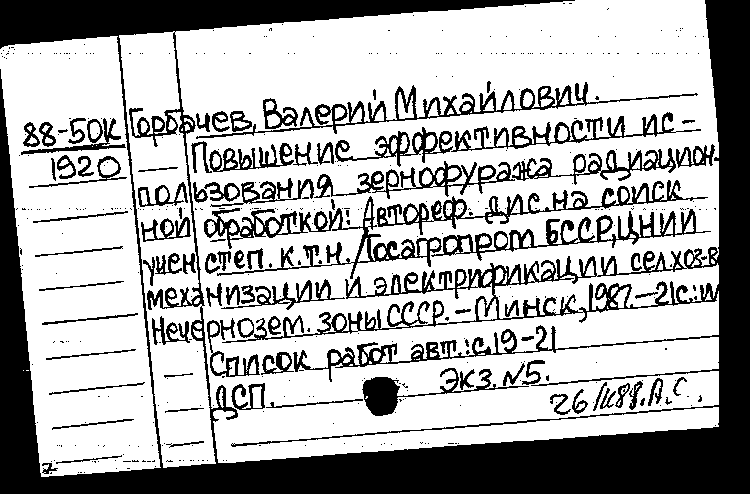 88-50К Горбачев, Валерий Михайлович.
1920 Повышение эффективности ис-
пользования зернофуража радиацион-
ной обработкой: Автореф. дис. на соиск
учен степ. к.т.н. /Госагропром БССР, ЦНИИ
механизации и электрификации сел.хоз-ва
Нечернозем. зоны СССР. - Минск, 1987. - 21с.: ил
Список работ авт.: с.19-21
ДСП. Экз. N5.